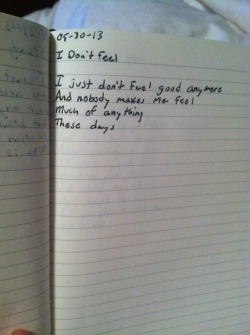 05-30-13
I Don't Feel
I just don't fuel good anymore
And nobody makes me feel
Much of anything
These days